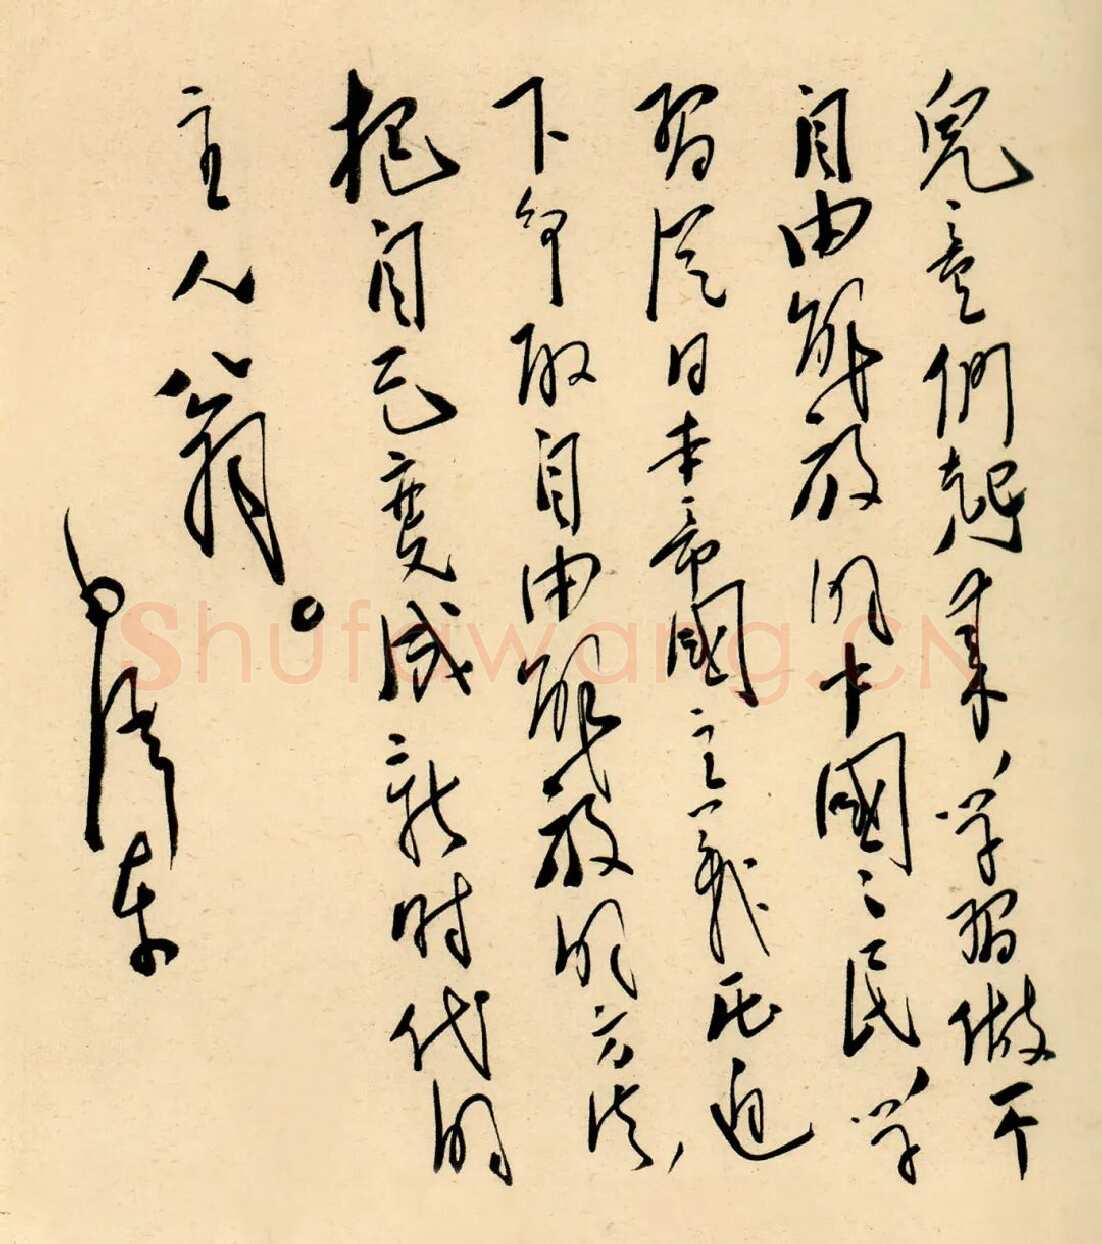 兒童們起来，学習做一个
自由解放的中國國民，学
習従日本帝國主義压迫
下争取自由解放的方法，
把自己变成新时代的
主人翁。
毛澤东
Shufawang.CN